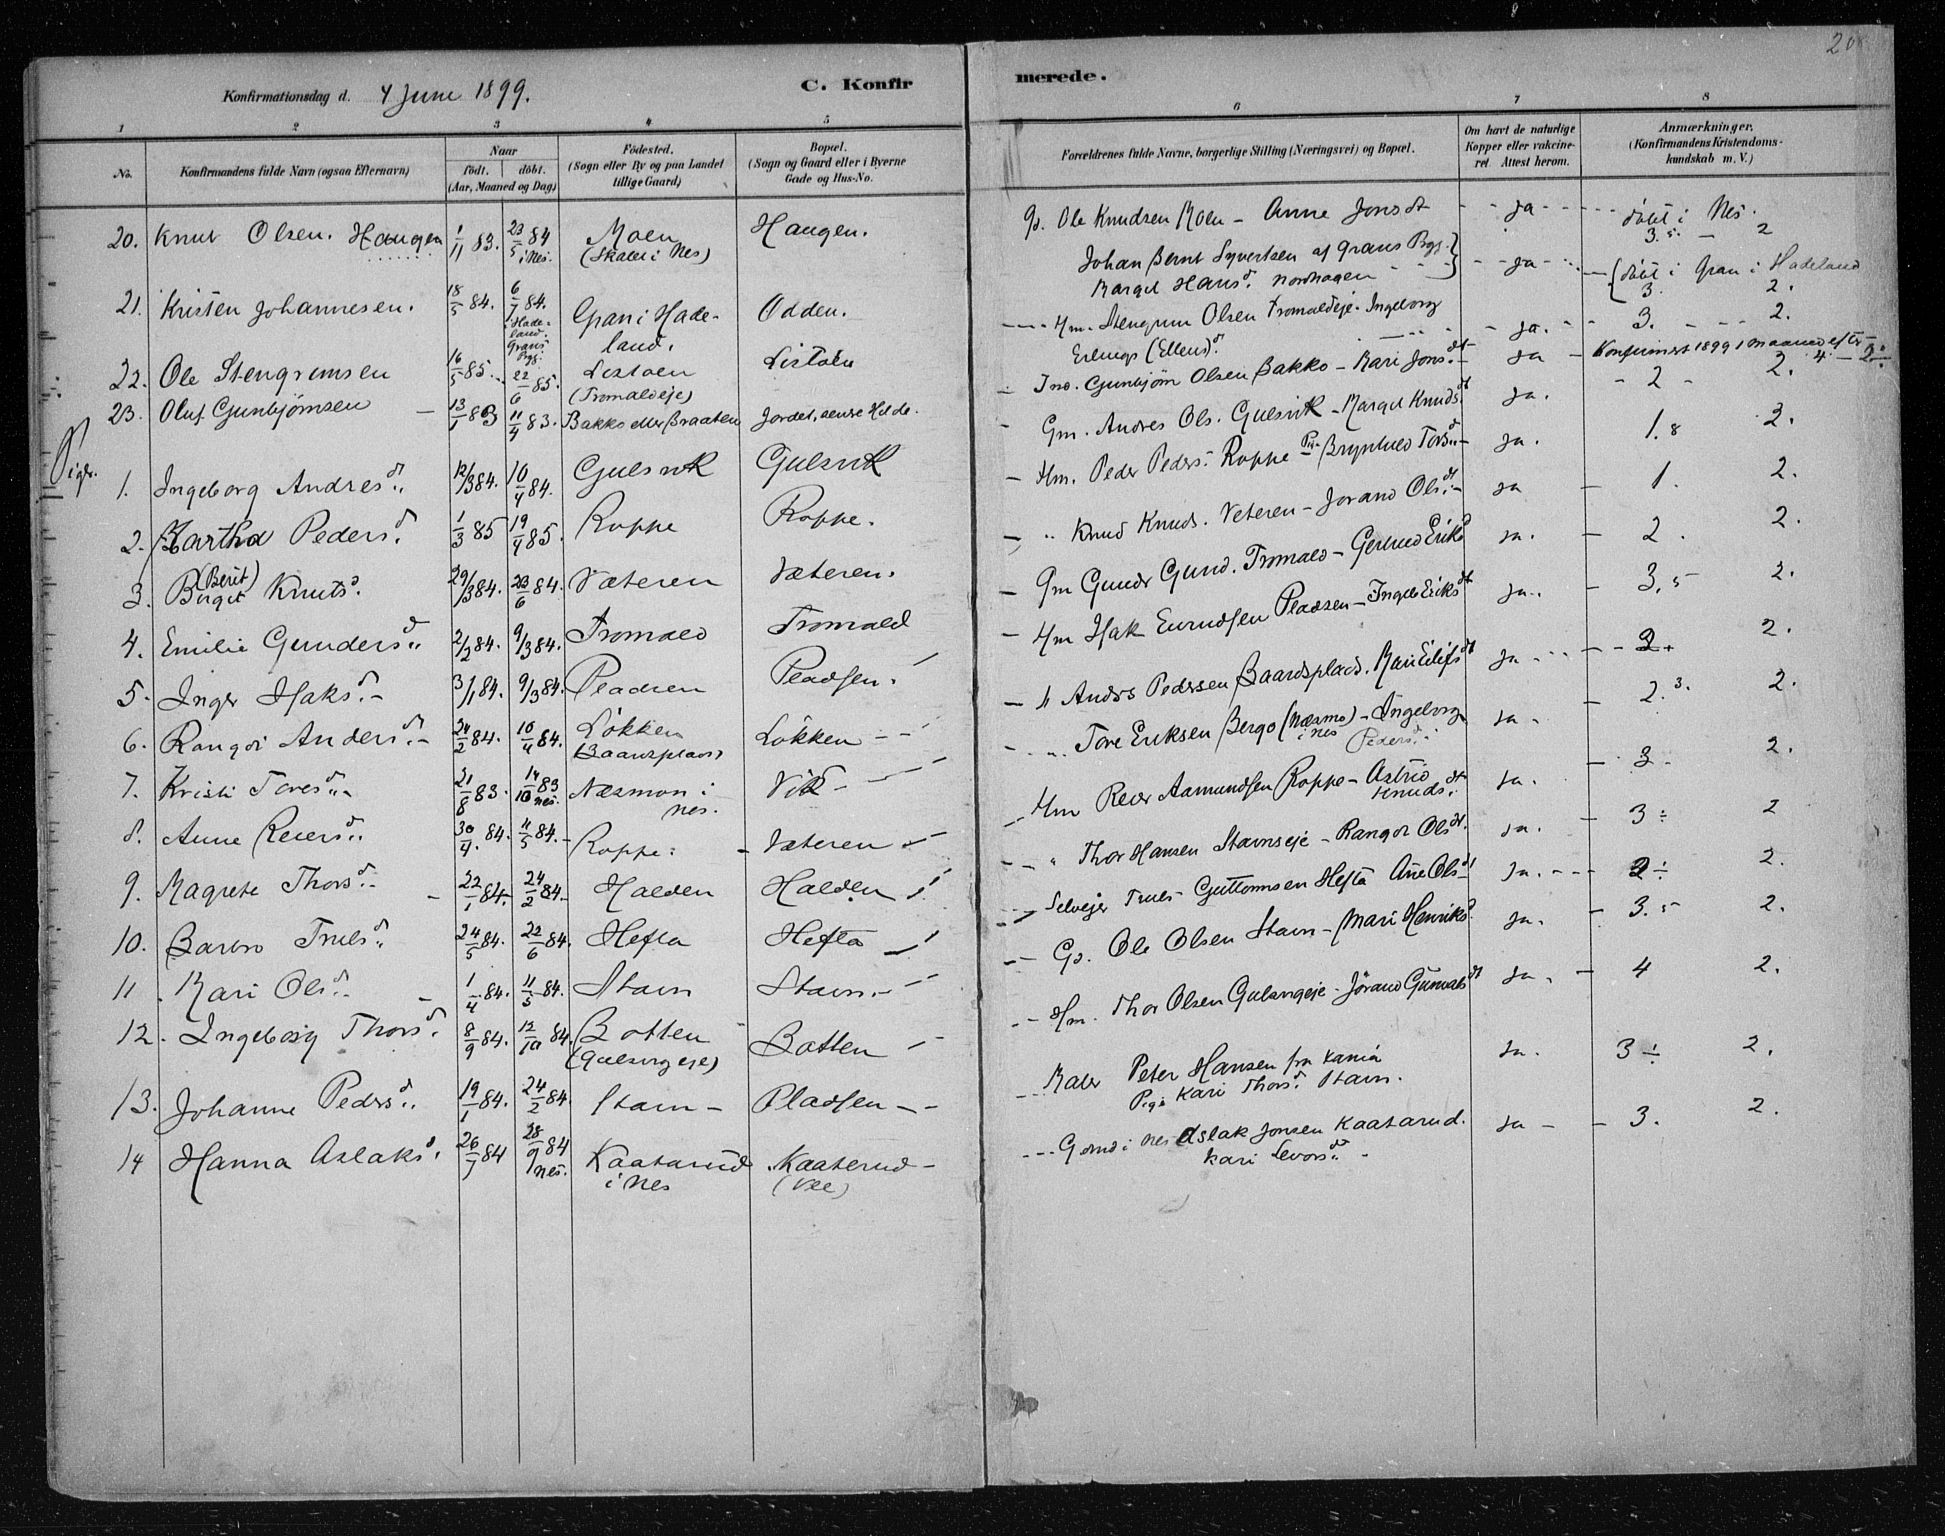 20
Konfirmationsdag d. 4 June 1899.
C. Konfirmerede.
1 2 3 4 5 6 7 8
No.
Konfirmandens fulde Navn (ogsaa Efternavn)
Naar
födt. döbt.
(Aar, Maaned og Dag)
Födested.
(Sogn eller By og paa Landet
tillige Gaard)
Bopæl.
(Sogn og Gaard eller i Byerne
Gade og Hus-No.
Forældrenes fulde Navne, borgerlige Stilling (Næringsvei) og Bopæl.
Om havt de naturlige
Kopper eller vakcine-
ret. Attest herom.
Anmærkninger.
(Konfirmandens Kristendoms-
kundskab m. V.)
20. Knut Olsen. Haugen 1/11 83. 23/5 84 i Nes. Moen (Skaler i Nes) Haugen. Ole Knudsen Moen - Anne Jonsdt - ja - döbt i Nes. 3.5. - 2
21. Kristen Johannesen. 18/5 84. 6/7 84. i Hadeland. Grans Pgj. Gran i Hade-
land. Odden. Johan Bernt Syvertsen af Grans Pgj.
Margit Hansd. Nordhagen - ja - döbt i Gran i Hadeland 3. 2.
22. Ole Stengrimsen 16/5 85. 22/6 85. Listoen (Tromaldeje) Listoen Hm. Stengrim Olsen Tromaldeje - Ingeborg
Erlings (Ellens)d. - ja. - 3. - 2.
23. Oluf Gunbjörnsen - 13/1 83 11/4 83. Bakko eller Braaten Jordet, senere Hilde. Ino. Gunbjörn Olsen Bakko - Kari Jonsdt - ja - Konfirmert 1899 1 maaned efter 4 - 2.
Piger.
1. Ingeborg Andresd. 12/3 84. 10/4 84. Gulsvik Gulsvik Gm. Andres Ols. Gulsvik - Margit Knudsdt ja. - 2 - 2.
2. Kartha Pedersd. 1/3 85 19/4 85. Roppe Roppe. - Hm. Peder Peders. Roppe Brynhild Torsd. - ja. 1.8 2.
3. Birgit (Berit) Knutsd. 29/3 84. 23/6 84. Væteren Væteren. - " Knud Knuds. Veteren - Jorand Olsdt. - ja - 1. 2.
4. Emilie Gundersd. 2/2 84. 9/3 84. Tromald Tromald - Gm Gunder Gund. Tromald - Gertrud Eriksd ja. - 2. 2.
5. Inger Haksd. - 3/1 84. 9/3 84. Pladsen Pladsen. - Hm Hak Eurudsen Pladsen - Ingeb. Eriksdt ja. - 3.5 2.
6. Rangdi Andersd. - 24/2 84. 10/4 84. Lökken (Baardsplads) Lökken - - - " Anders Pedersen Baardsplads. Kari Eilifsdt ja - - 2+ 2.
7. Kristi Toresd. - 21/8 83. 14/10 83 Nes. Næsmon i
Nes. Vik - - " Tore Eriksen Bergo (Næsmo) i Nes - Ingeborg
Pedersd. ja - 2.3. 2.
8. Anne Reiersd. 30/4 84. 11/5 84. - Roppe. - Væteren - Hm Reier Aamundsen Roppe - Astrid
Knudsdt. ja. - 3 - 2.
9. Magrete Thorsd. - 22/1 84. 24/2 84. Halden Halden - " Thor Hansen Stavnseje - Rangdi Olsdt. ja. - 3 ÷ 2
10. Barbro Trulsd. 24/5 84. 22/6 84. Hefta Hefta - Selvejer Truls Guttormsen Hefta Ane Olsdt ja. - - - 2 ÷ 2.
11. Kari Olsd. - 1/4 84. 11/5 84. Stavn Stavn. - - - Gd. Ole Olsen Stavn - Mari Henriksd. ja. - 3.5 2.
12. Ingeborg Thorsd. 8/9 84. 12/10 84. Botten (Gulsvigeje) Botten - Hm. Thor Olsen Gulsvigeje - Jörand Gunvalsdt ja. - 4 2.
13. Johanne Pedersd. 19/1 84. 24/2 84. Stavn - Pladsen - - Maler Peter Hansen fra Xania
Pige Kari Thorsd. Stavn. ja. 3 ÷ 2.
14 Hanna Aslaksd. 26/7 84 28/9 84 Nes. Kaatarud
i Nes Kaaterud - - - - Gdmd i Nes Aslak Jonsen Kaatarud.
Kari Levorsd. - ja - - 3. 2.